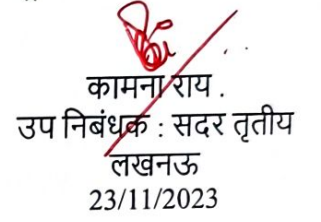 कामना राय .
उप निबंधक : सदर तृतीय
लखनऊ
23/11/2023